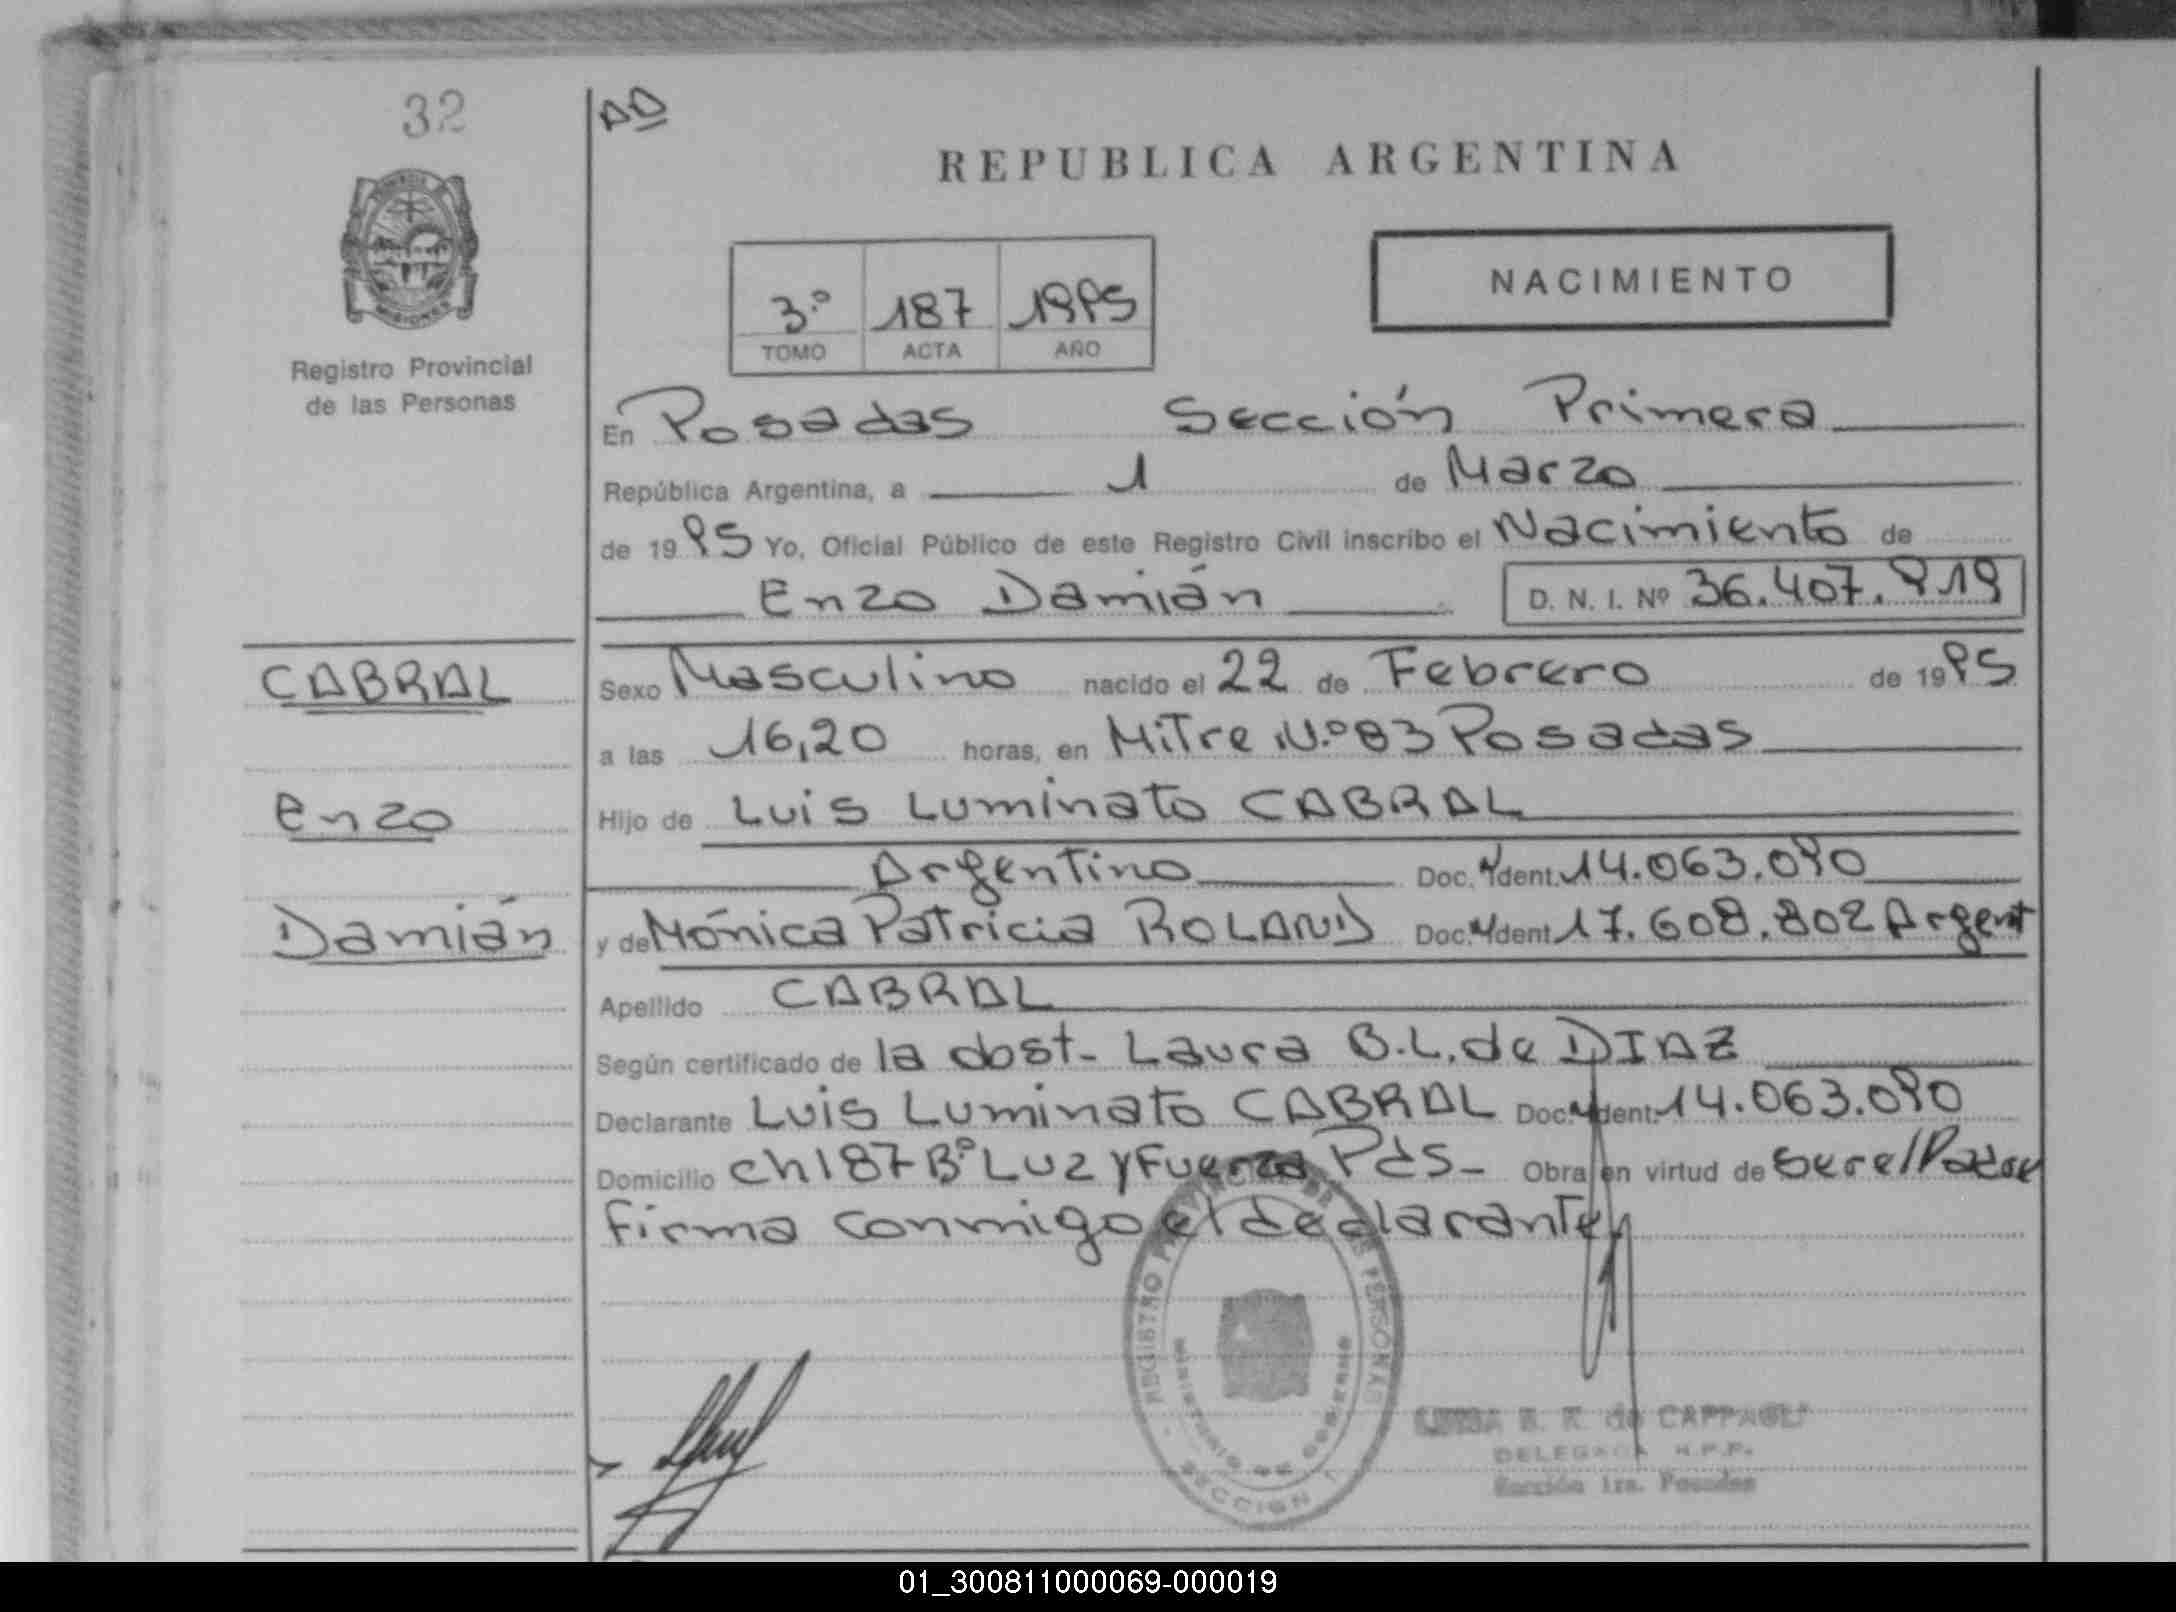 32
AD
REPUBLICA ARGENTINA
NACIMIENTO
3.º 187 1995
TOMO ACTA AÑO
Registro Provincial
de las Personas
En Posadas Sección Primera
República Argentina, a 1 de Marzo
de 1995 Yo, Oficial Público de este Registro Civil inscribo el Nacimiento de
Enzo Damián D. N. I. Nº 36.407.919
CABRAL
Sexo Masculino nacido el 22 de Febrero de 1995
a las 16,20 horas, en Mitre N.º 83 Posadas
Enzo
Hijo de Luis Luminato CABRAL
Argentino Doc. Ydent. 14.063.090
Damián
y de Mónica Patricia ROLAND Doc. Ydent 17.608.802 Argent
Apellido CABRAL
Según certificado de la obst- Laura B.L. de DIAZ
Declarante Luis Luminato CABRAL Doc. Ydent. 14.063.090
Domicilio ch 187 Bº Luz y Fuerza Pdas- Obra en virtud de ser el Padre
firma conmigo el declarante,
REGISTRO PROVINCIAL DE LAS PERSONAS
MINISTERIO DE GOBIERNO
SECCION 1
E. R. de CAPPAGLI
DELEGADA R.P.P.
Sección 1ra. Posadas
01_300811000069-000019